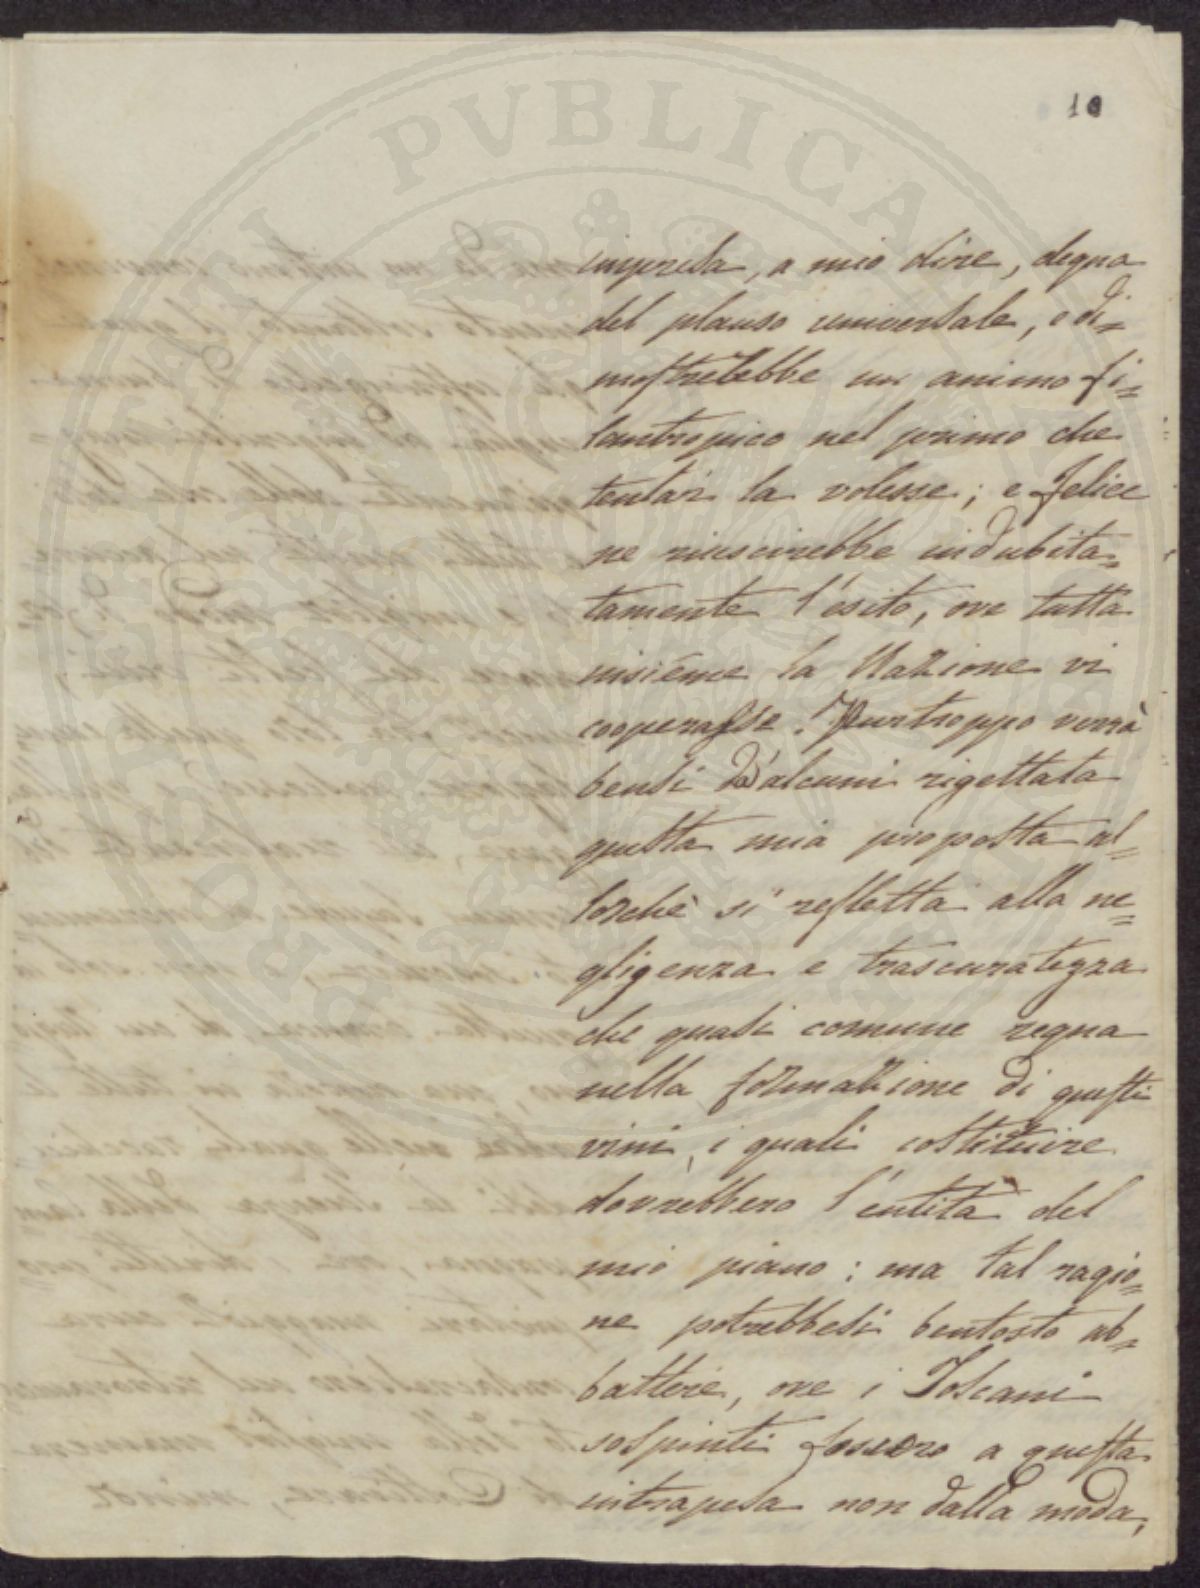 10
impresa, a mio dire, degna
del plauso universale, e di=
mostrerebbe un animo fi=
lantropico nel primo che
tentar la volesse; e felice
ne riuscirebbe indubita=
tamente l'esito, ove tutta
insieme la Nazione vi
cooperasse. Purtroppo verrà
bensì d'alcuni rigettata
questa mia proposta al=
lorchè si refletta alla ne=
gligenza e trascuratezza
che quasi comune regna
nella formazione di questi
vini, i quali costituire
dovrebbero l'entità del
mio piano: ma tal ragio=
ne potrebbesi bentosto ab=
battere, ove i Toscani
sospinti fossero a questa
intrapresa non dalla moda,
PUBLICA